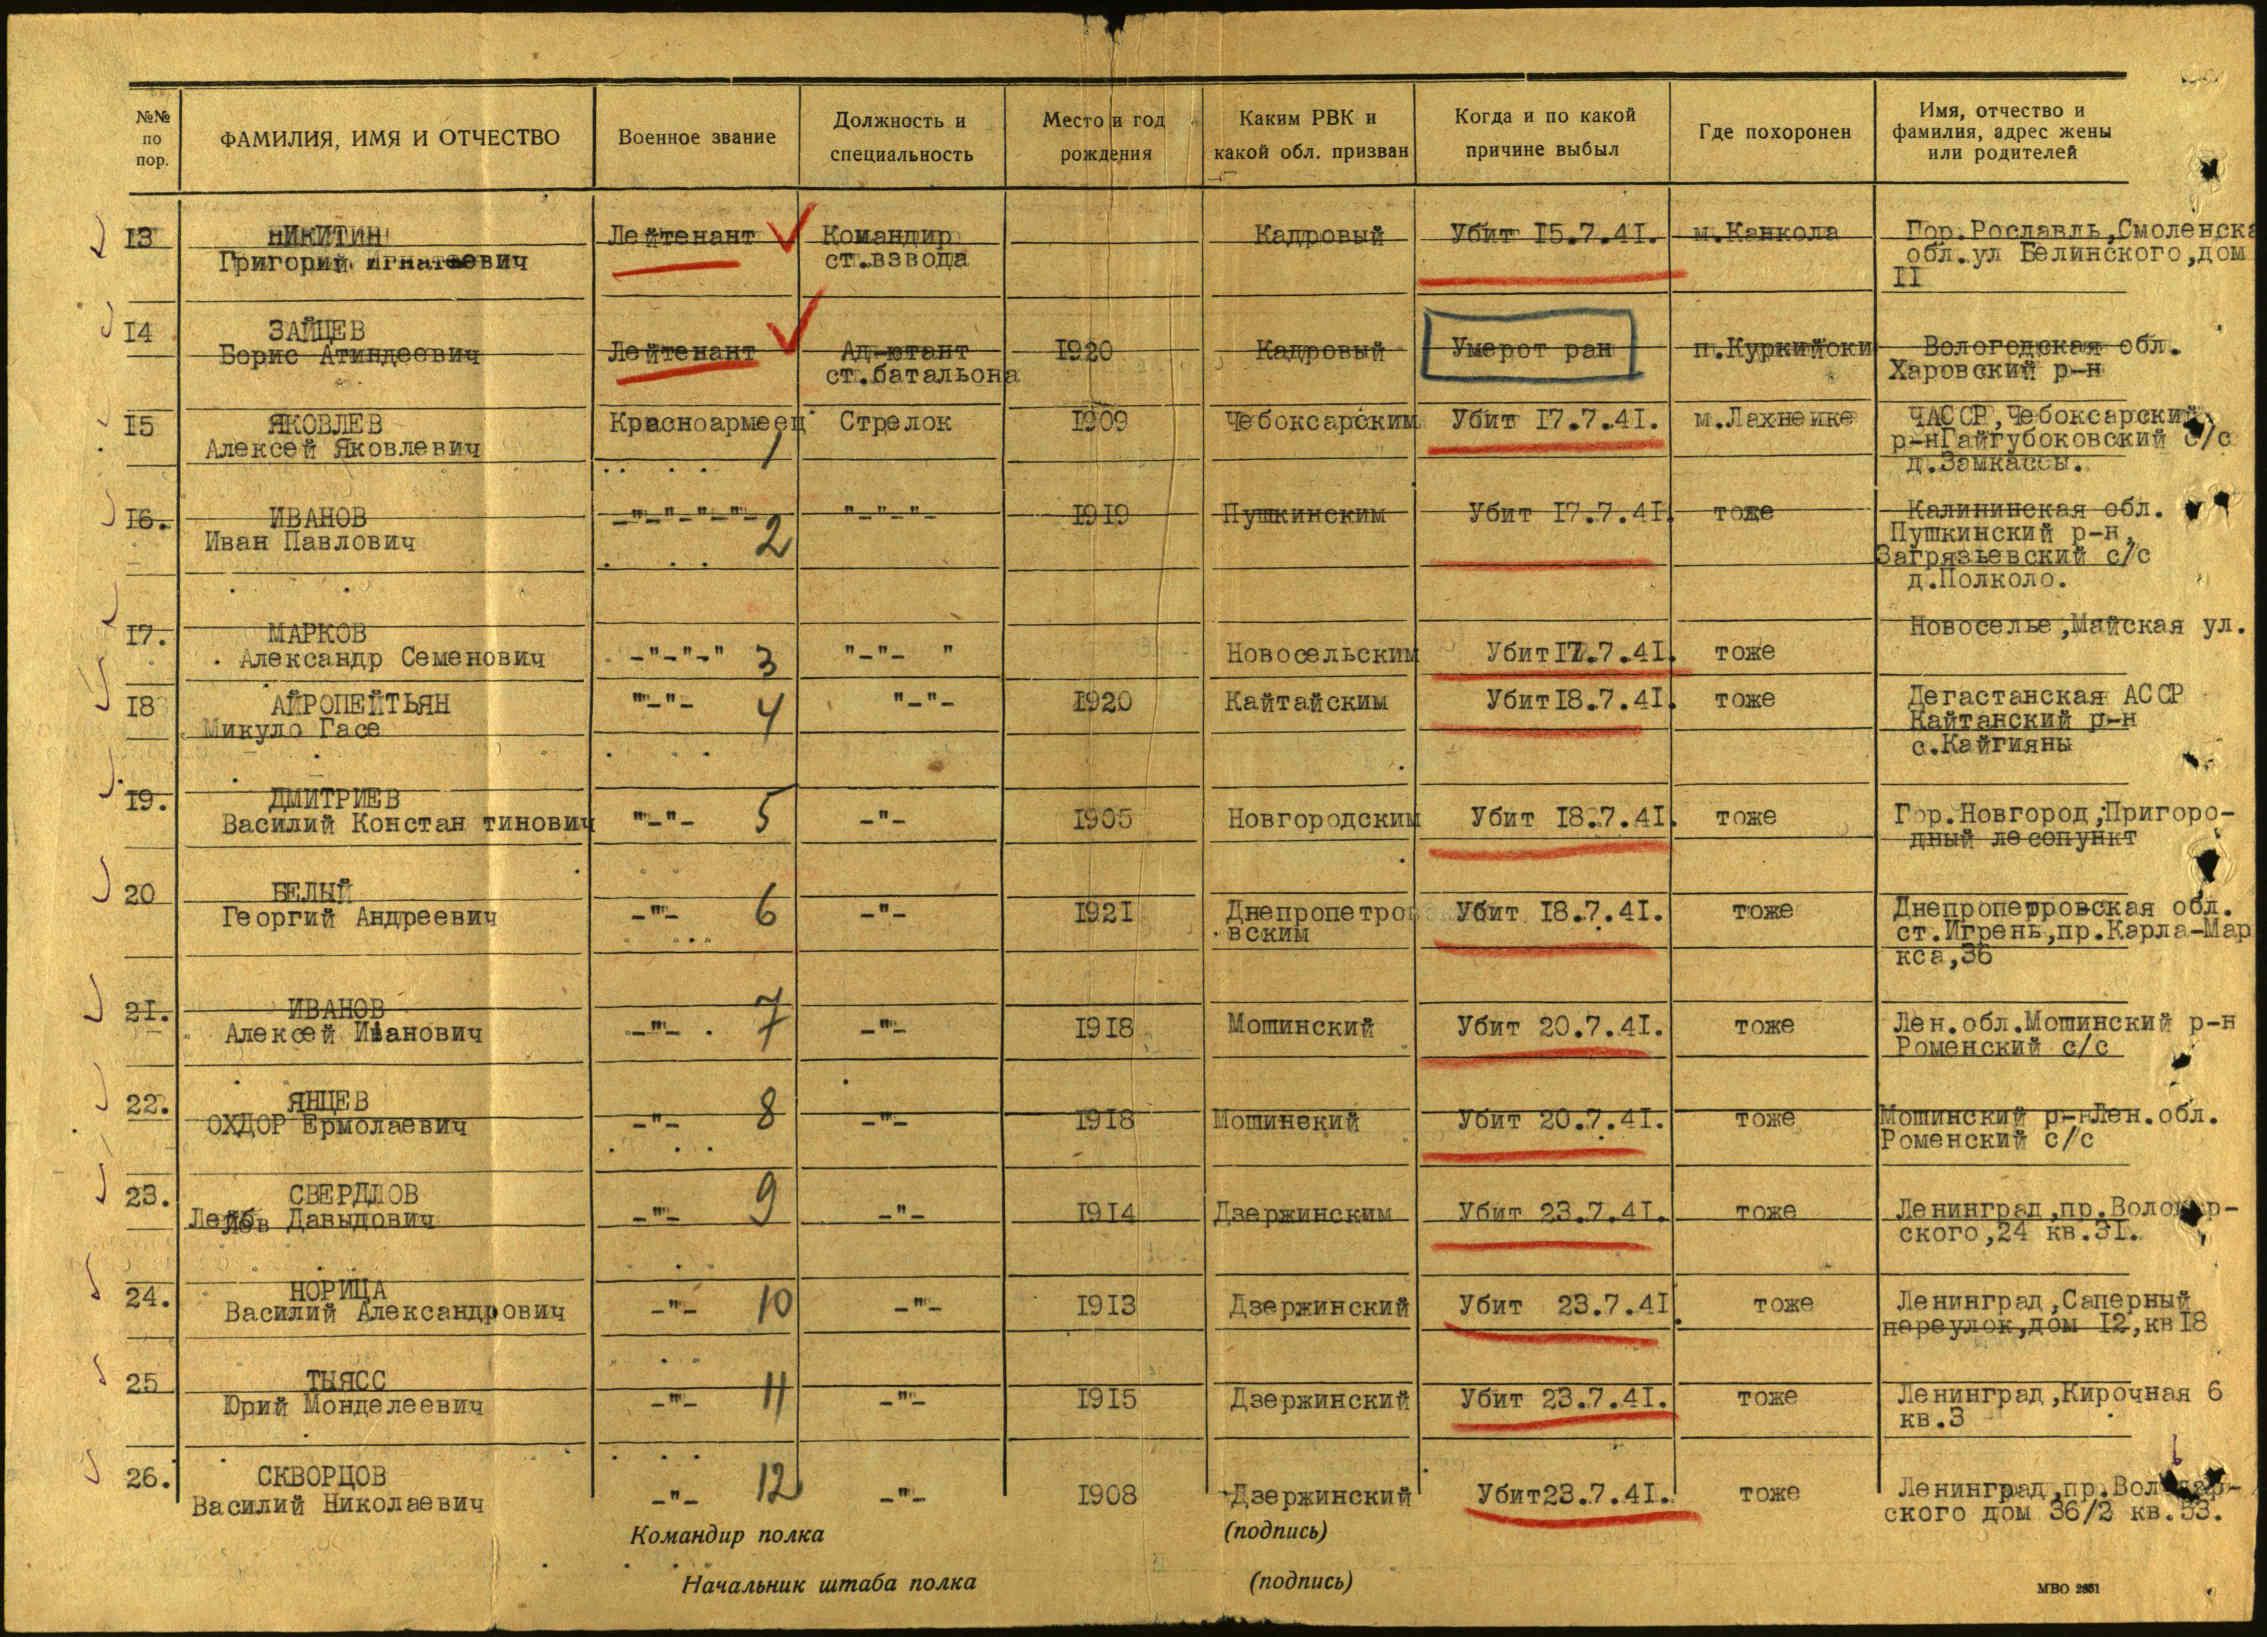 №№ по пор.
ФАМИЛИЯ, ИМЯ И ОТЧЕСТВО
Военное звание
Должность и специальность
Место и год рождения
Каким РВК и какой обл. призван
Когда и по какой причине выбыл
Где похоронен
Имя, отчество и фамилия, адрес жены или родителей
13 НИКИТИН Лейтенант Командир Кадровый Убит 15.7.41. м.Канкола Гор.Рославль,Смоленска
Григорий Игнатьевич ст.взвода обл.ул Белинского,дом
II
14 ЗАЙЦЕВ
Борис Атиндеович Лейтенант Ад-ютант 1920 Кадровый Умерот ран п.Куркийоки Вологодская обл.
ст.батальона Харовский р-н
15 ЯКОВЛЕВ Красноармеец Стрелок 1909 Чебоксарским Убит 17.7.41. м.Лахнеике ЧАССР,Чебоксарский
Алексей Яковлевич 1 р-нГайгубоковский с/с
д.Замкассы.
16. ИВАНОВ -"-"-"-"- "-"-"- 1919 Пушкинским Убит 17.7.41. тоже Калининская обл.
Иван Павлович 2 Пушкинский р-н,
Загрязьевский с/с
д.Полколо.
17. МАРКОВ Новоселье,Майская ул.
Александр Семенович -"-"-" 3 "-"- " Новосельским Убит 17.7.41. тоже
18 АЙРОПЕЙТЬЯН "-"- 4 "-"- 1920 Кайтайским Убит 18.7.41. тоже Дегастанская АССР
Микуло Гасе Кайтанский р-н
с.Кайгияны
19. ДМИТРИЕВ
Василий Констан тинович "-"- 5 -"- 1905 Новгородским Убит 18.7.41. тоже Гор.Новгород,Пригоро-
дный лесопункт
20 БЕЛЫЙ
Георгий Андреевич -"- 6 -"- 1921 Днепропетро Убит 18.7.41. тоже Днепропетровская обл.
вским ст.Игрень,пр.Карла-Мар
кса,36
21. ИВАНОВ
Алексей Иванович -"- 7 -"- 1918 Мошинский Убит 20.7.41. тоже Лен.обл.Мошинский р-н
Роменский с/с
22. ЯНЦЕВ
ОХДОР Ермолаевич -"- 8 -"- 1918 Мошинский Убит 20.7.41. тоже Мошинский р-нЛен.обл.
Роменский с/с
23. СВЕРДЛОВ
Давыдович -"- 9 -"- 1914 Дзержинским Убит 23.7.41. тоже Ленинград,пр.Володар-
ского,24 кв.31.
24. НОРИЦА
Василий Александрович -"- 10 -"- 1913 Дзержинский Убит 23.7.41. тоже Ленинград,Саперный
переулок,дом 12,кв18
25 ТЫЯСС
Юрий Монделеевич -"- 11 -"- 1915 Дзержинский Убит 23.7.41. тоже Ленинград,Кирочная 6
кв.3
26. СКВОРЦОВ
Василий Николаевич -"- 12 -"- 1908 Дзержинский Убит23.7.41. тоже Ленинград,пр.Володар-
ского дом 36/2 кв.53.
Командир полка (подпись)
Начальник штаба полка (подпись)
МВО 2851